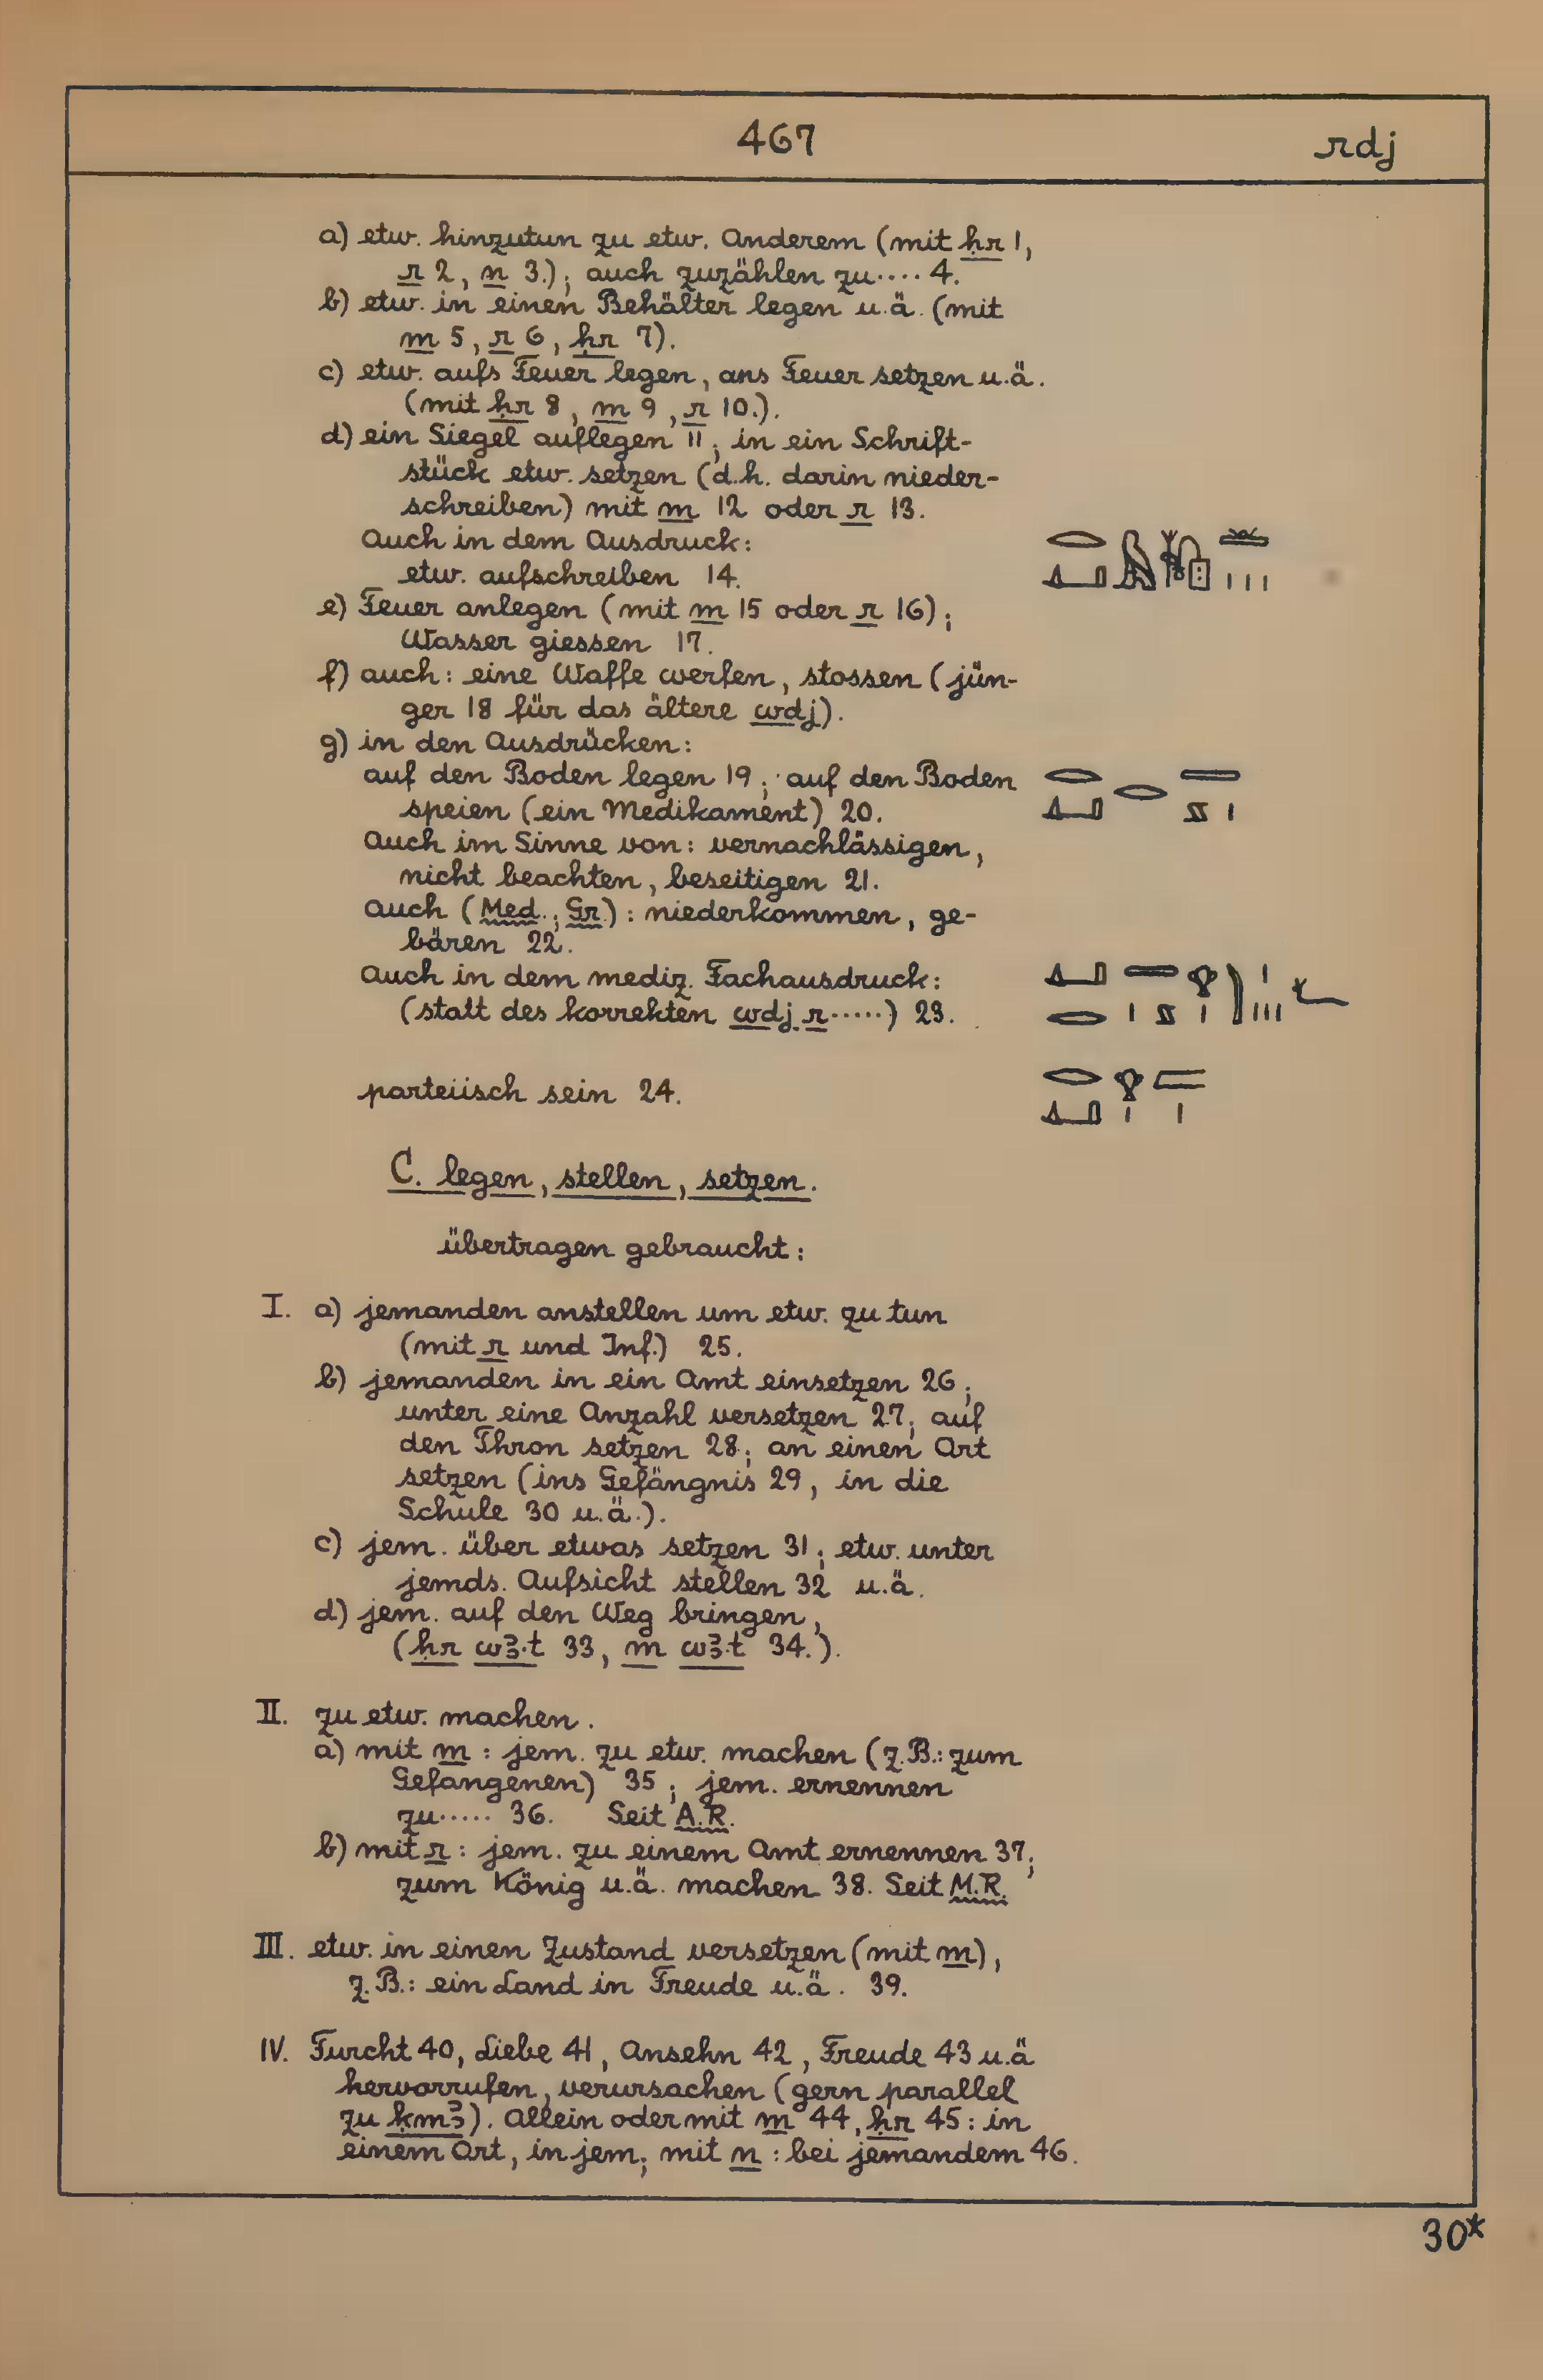 467
rdj
a) etw. hinzutun zu etw. Anderem (mit ḥr 1,
r 2, n 3.); auch zuzählen zu.... 4.
b) etw. in einen Behälter legen u.ä. (mit
m 5, r 6, ḥr 7).
c) etw. aufs Feuer legen, ans Feuer setzen u.ä.
(mit ḥr 8, m 9, r 10.).
d) ein Siegel auflegen 11; in ein Schrift-
stück etw. setzen (d.h. darin nieder-
schreiben) mit m 12 oder r 13.
Auch in dem Ausdruck:
etw. aufschreiben 14.
e) Feuer anlegen (mit m 15 oder r 16);
Wasser giessen 17.
f) auch: eine Waffe werfen, stossen (jün-
ger 18 für das ältere wdj).
g) in den Ausdrücken:
auf den Boden legen 19; auf den Boden
speien (ein Medikament) 20.
Auch im Sinne von: vernachlässigen,
nicht beachten, beseitigen 21.
auch (Med., Gr.): niederkommen, ge-
bären 22.
Auch in dem mediz. Fachausdruck:
(statt des korrekten wdj r.....) 23.
parteiisch sein 24.
C. legen, stellen, setzen.
übertragen gebraucht:
I. a) jemanden anstellen um etw. zu tun
(mit r und Inf.) 25.
b) jemanden in ein Amt einsetzen 26;
unter eine Anzahl versetzen 27; auf
den Thron setzen 28; an einen Ort
setzen (ins Gefängnis 29, in die
Schule 30 u.ä.).
c) jem. über etwas setzen 31; etw. unter
jemds. Aufsicht stellen 32 u.ä.
d) jem. auf den Weg bringen,
(ḥr wꜣ.t 33, m wꜣ.t 34.).
II. zu etw. machen.
a) mit m: jem. zu etw. machen (z.B.: zum
Gefangenen) 35; jem. ernennen
zu..... 36. Seit A.R.
b) mit r: jem. zu einem Amt ernennen 37;
zum König u.ä. machen 38. Seit M.R.
III. etw. in einen Zustand versetzen (mit m),
z.B.: ein Land in Freude u.ä. 39.
IV. Furcht 40, Liebe 41, Ansehn 42, Freude 43 u.ä
hervorrufen, verursachen (gern parallel
zu ḳmꜣ). Allein oder mit m 44, ḥr 45: in
einem Ort, in jem; mit n: bei jemandem 46.
30*